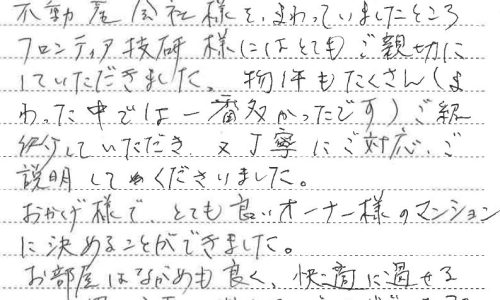 不動産会社様を、まわっていましたところ
フロンティア技研様にはとてもご親切に
していただきました。物件もたくさん(ま
わった中では一番多かったです)ご紹
介していただき、又丁寧にご対応、ご
説明してくださいました。
おかげ様で、とても良いオーナー様のマンション
に決めることができました。
お部屋はながめも良く、快適に過せる